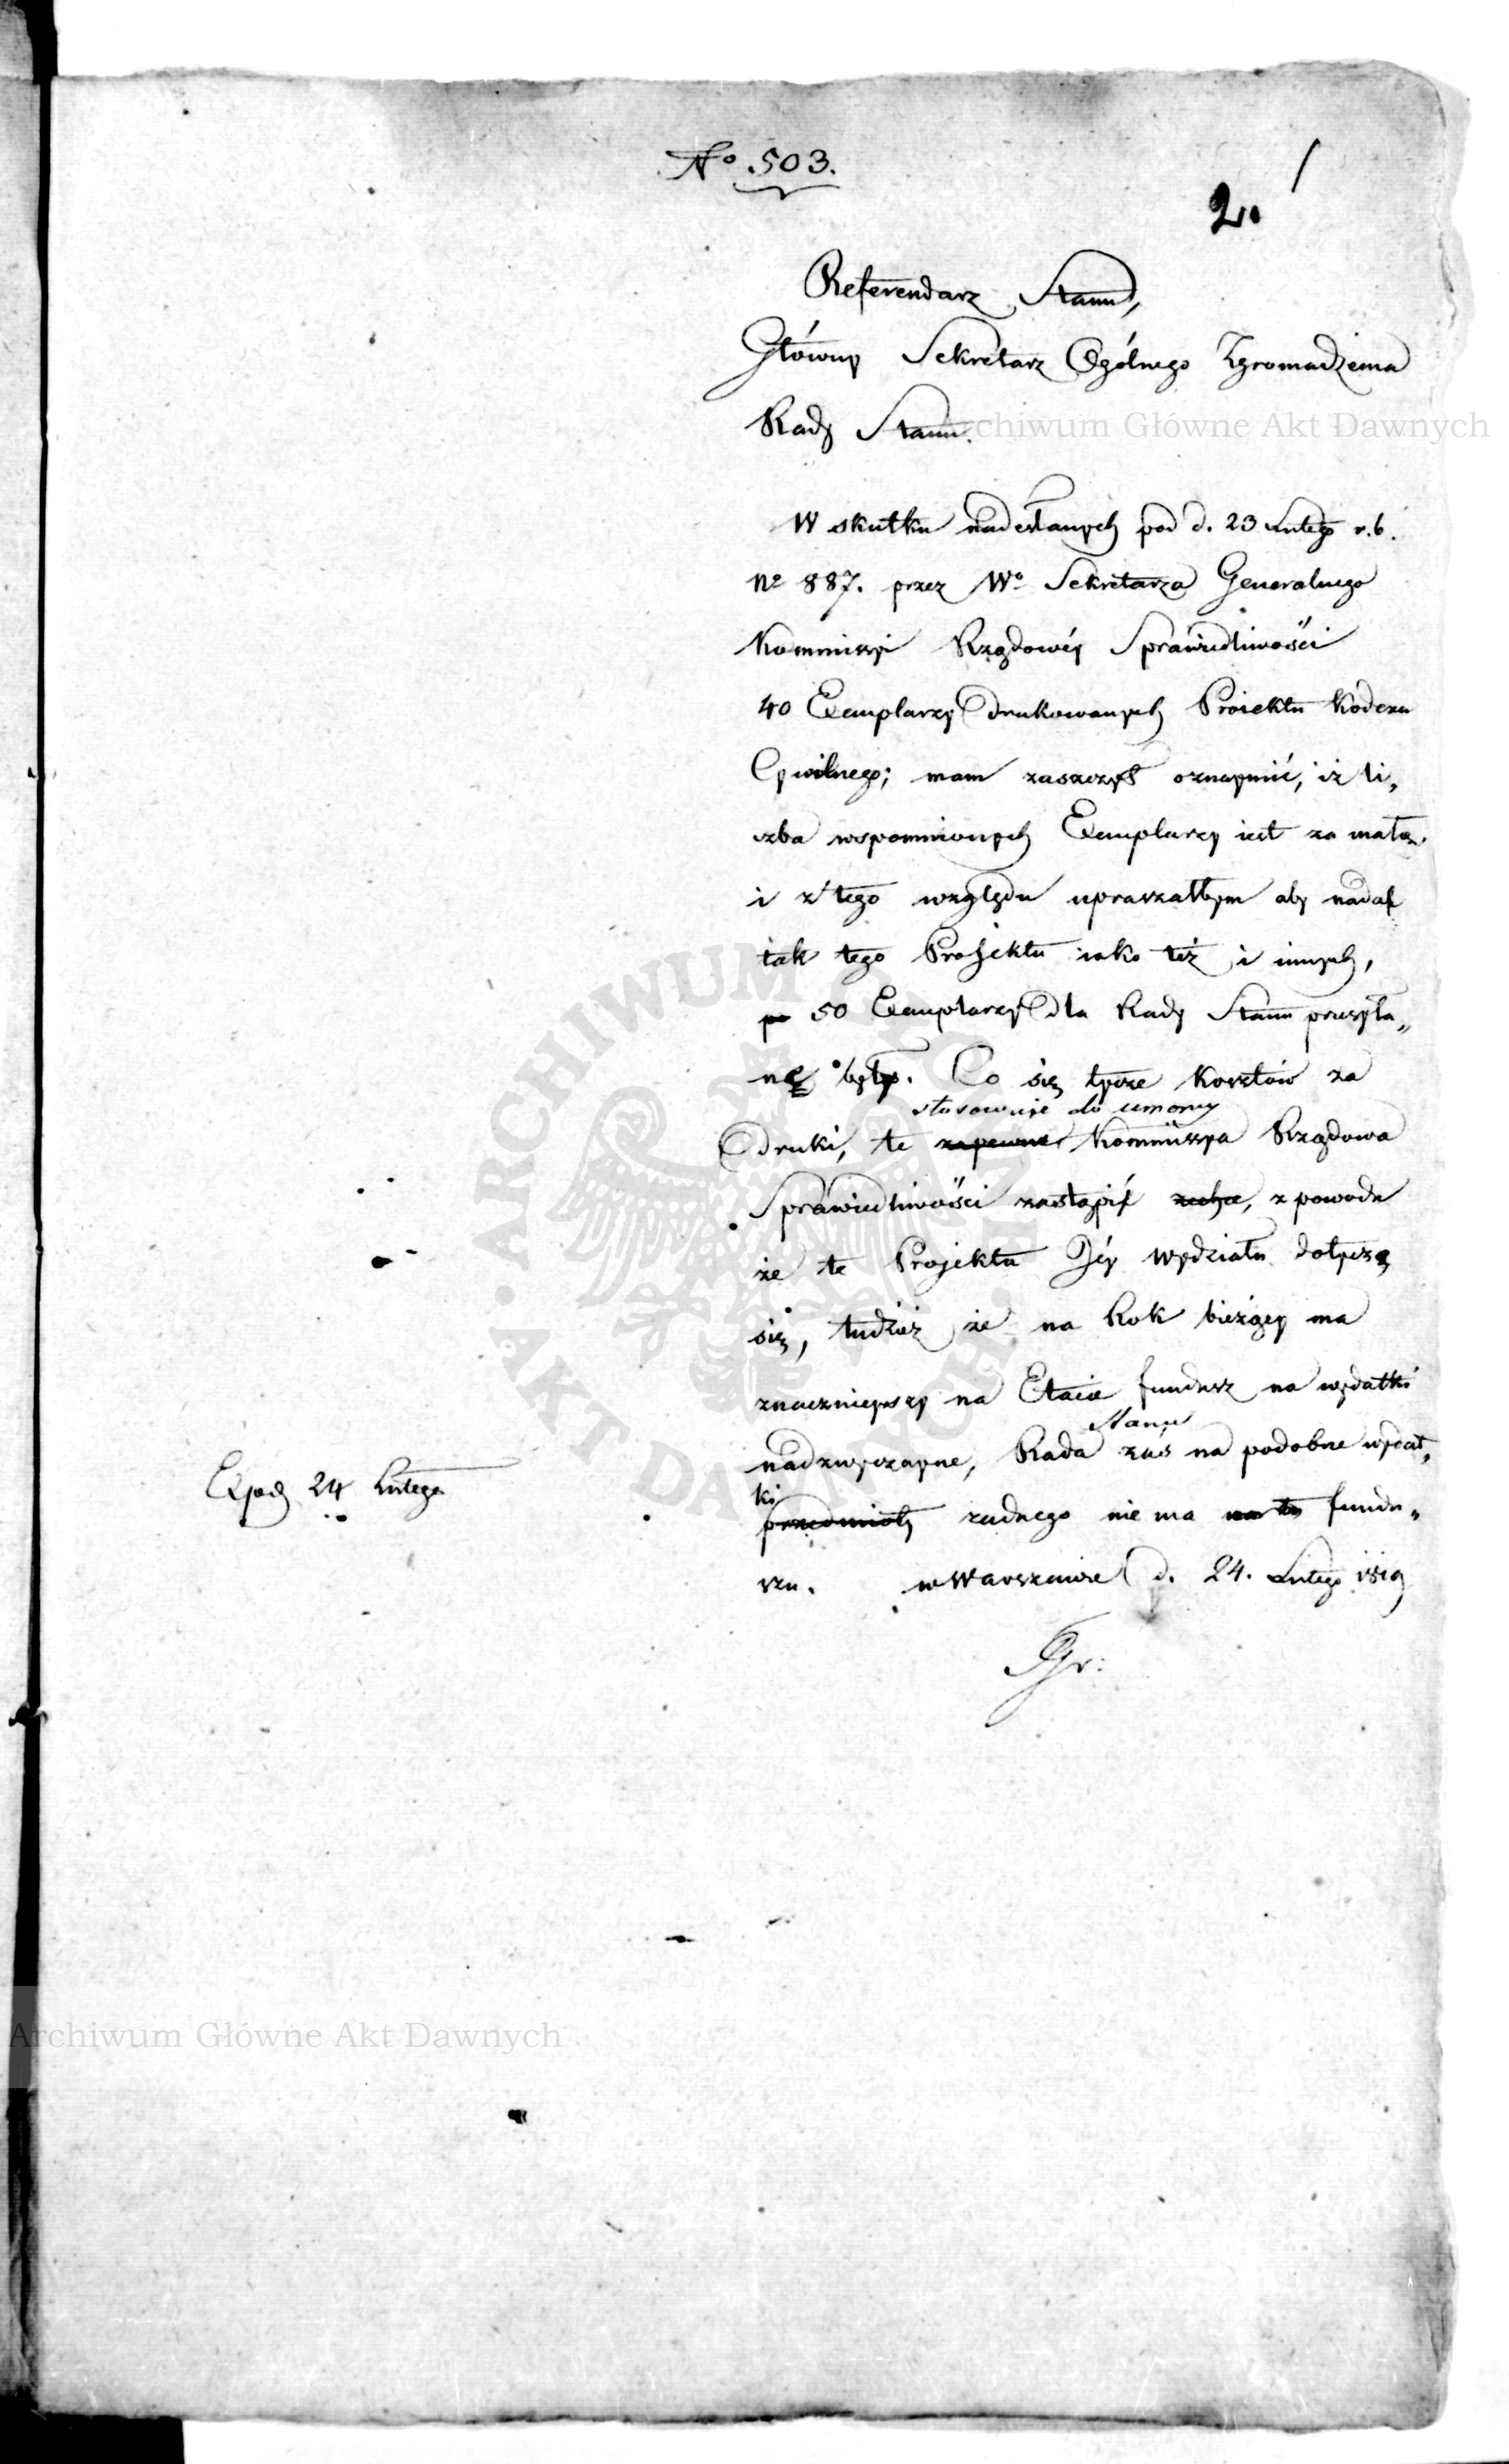 No. 503.
2.
Referendarz Stanu,
Główny Sekretarz Ogólnego Zgromadzenia
Rady Stanu.
Archiwum Główne Akt Dawnych
W skutku nadesłanych pod d. 23 Lutego r. b.
No 887. przez Wo Sekretarza Generalnego
Kommissyi Rządowéy Sprawiedliwości
40 Exemplarzy drukowanych Proiektu Kodexu
Cywilnego; mam zaszczyt oznaymić, iż li„
czba wspomnionych Exemplarzy iest za mała.
i z tego względu upraszałbym aby nadal
tak tego Projektu iako też i innych,
po 50 Exemplarzy dla Rady Stanu przesyła„
ne były. Co się tycze Kosztów za
stosownie do umowy
druki, te zapewne Kommissya Rządowa
Sprawiedliwości zastąpi zechce, z powodu
że te Projekta Jéy wydziału dotyczą
się, tudzież że na Rok bieżący ma
znacznieyszy na Etacie fundusz na wydatki
Stanu
nadzwyczayne, Rada zaś na podobne wydat„
ki
przedmioty żadnego nie ma na to fundu„
szu. w Warszawie d. 24. Lutego 1819
Gr:
Exped 24 Lutego
ARCHIWUM GŁÓWNE AKT DAWNYCH
Archiwum Główne Akt Dawnych